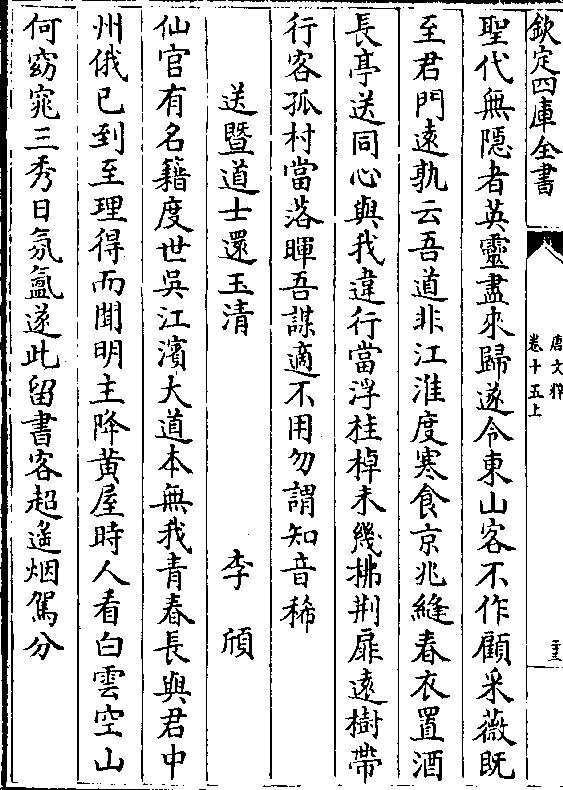 欽定四庫全書
唐文粹
卷十五上
聖代無隱者英靈盡來歸遂令東山客不作顧采薇既
至君門遠孰云吾道非江淮度寒食京兆縫春衣置酒
長亭送同心與我違行當浮桂棹未幾拂荆扉遠樹帶
行客孤村當落暉吾謀適不用勿謂知音稀
送暨道士還玉清　李頎
仙官有名籍度世吳江濱大道本無我青春長與君中
州俄已到至理得而聞明主降黄屋時人看白雲空山
何窈窕三秀日氛氳遂此留書客超遙烟駕分